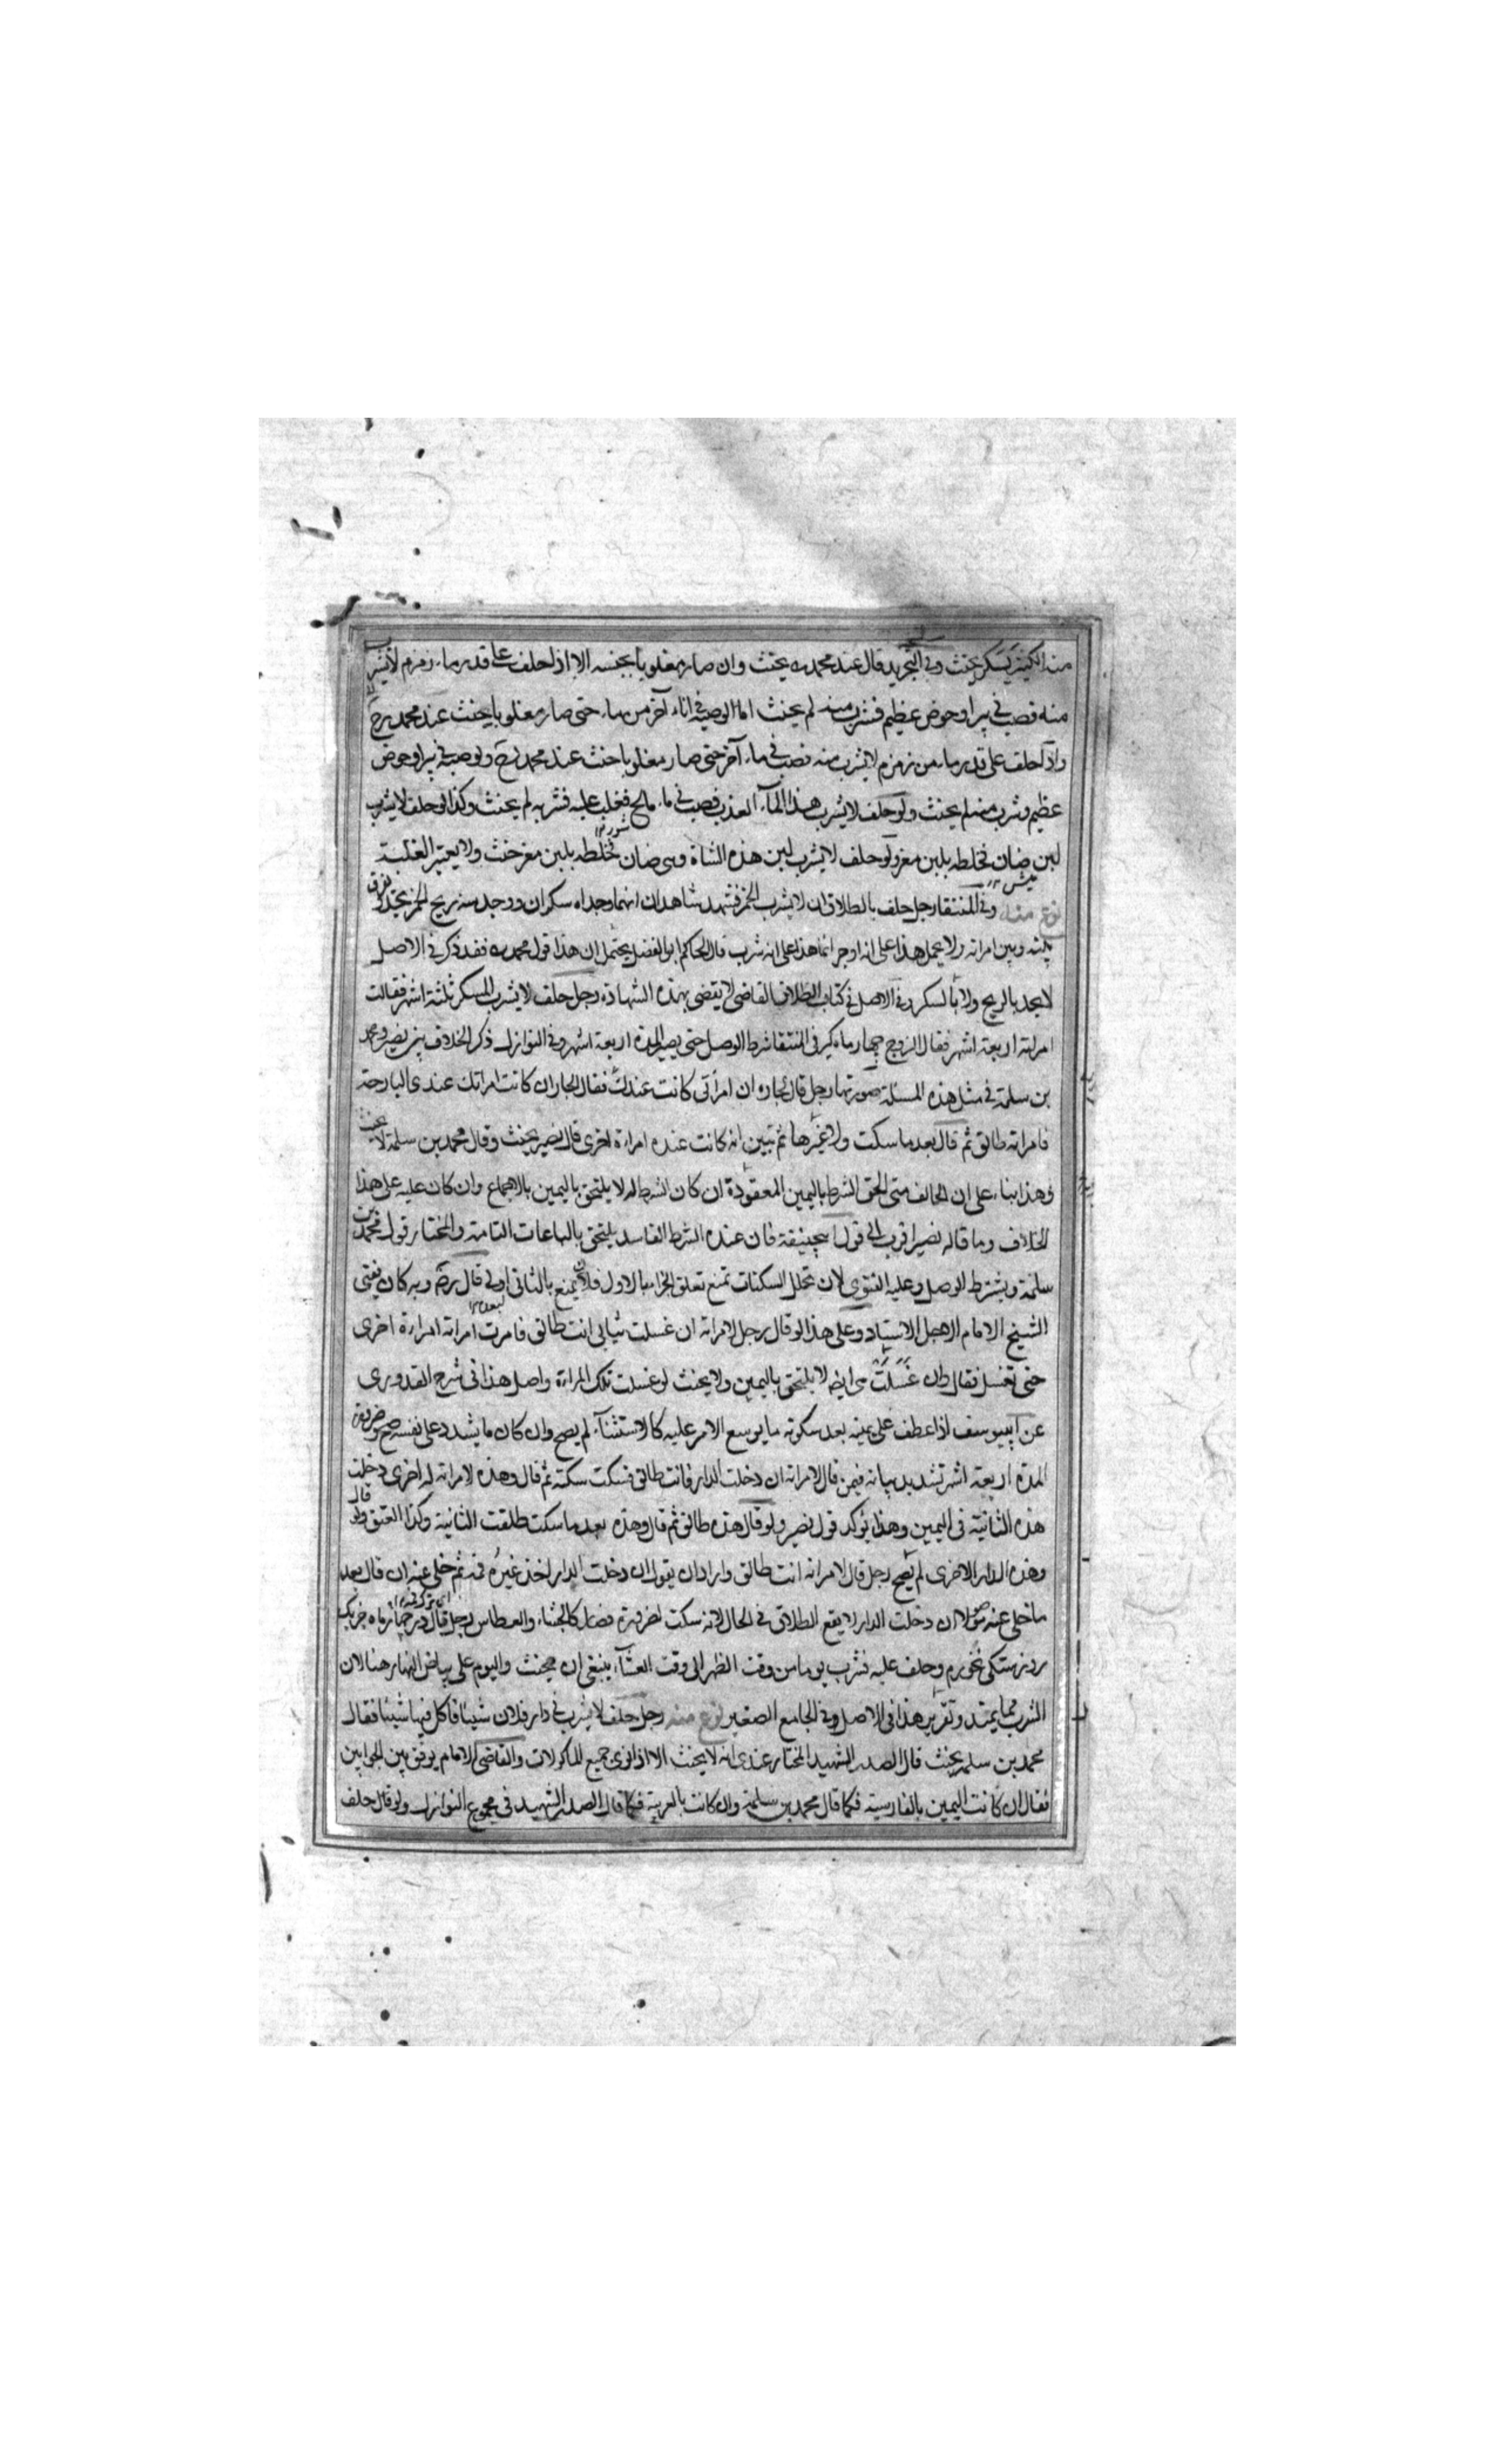 منه الكثير يسكر يحنث وفي التجريد قال عند محمد ره يحنث وان صار مغلوبا بجنسه الا اذا حلف على قدر ماء زمزم لا يشرب
منه فصب في بير او حوض عظيم فشرب منه لم يحنث اما لو صبه في اناء آخر من ماء حتى صار مغلوبا يحنث عند محمد رح
واذا حلف على قدر ماء من زمزم لا يشرب منه فصب في ماء آخر حتى صار مغلوبا حنث عند محمد رح ولو صبه في بير او حوض
عظيم وشرب منه لم يحنث ولو حلف لا يشرب هذا المآء العذب فصب في ماء مالح فغلب عليه فشربه لم يحنث وكذا لو حلف لا يشرب
لبن ضان فخلطه بلبن معز ولو حلف لا يشرب لبن هذه الشاة وهي ضان فخلطه بلبن معز حنث ولا يعتبر الغلبة
نوع منه وفي المنتقا رجل حلف بالطلاق ان لا يشرب الخمر فشهد شاهدان انهما وجداه سكران ووجد منه ريح الخمر يفرق
بينه وبين امراته ولا يحمل هذا على انه اوجر انما هذا على انه شرب قال الحاكم ابو الفضل يحتمل ان هذا قول محمد ره فقد ذكر في الاصل
لا يحد بالريح ولا بالسكر وفي الاصل في كتاب الطلاق القاضي لا يقضى بهذه الشهادة رجل حلف لا يشرب المسكر ثلثة اشهر فقالت
امراته اربعة اشهر فقال الزوج چهار ماه گير في المنتقا شرط الوصل حتى يصير المدة اربعة اشهر وفي النوازل ذكر الخلاف بين نصير ومحمد
بن سلمة في مثل هذه المسئلة صورتها رجل قال لجاره ان امراتي كانت عندك فقال الجار ان كانت امراتك عندى البارحة
فامراته طالق ثم قال بعد ما سكت ولا غيرها ثم تبين انه كانت عنده امراة اخرى قال نصير يحنث وقال محمد بن سلمة لا يحنث
وهذا بناء على ان الحالف متى الحق الشرط باليمين المعقودة ان كان الشرط له لا يلتحق باليمين بالاجماع وان كان عليه على هذا
الخلاف وما قاله نصير اقرب الى قول ابيحنيفة فان عنده الشرط الفاسد يلتحق بالبياعات التامة والمختار قول محمد بن
سلمة ويشترط الوصل وعليه الفتوى لان تخلل السكتات تمنع تعلق الجزاء بالاول فلان يمنع بالثاني اولى قال رضه وبه كان يفتى
الشيخ الامام الاجل الاستاد وعلى هذا لو قال رجل لامراته ان غسلت ثيابي انت طالق فامرت امراته امراءة اخرى
حتى تغسل فقال وان غسلت هي ايضا لا يلتحق باليمين ولا يحنث لو غسلت تلك المراءة واصل هذا في شرح القدورى
عن ابييوسف اذا عطف على يمينه بعد سكوته ما يوسع الامر عليه كالاستثنآء لم يصح وان كان ما يشدد على نفسه صح وصيرورة
المدة اربعة اشهر تشديد بيانه فيمن قال لامراته ان دخلت الدار فانت طالق فسكت سكتة ثم قال وهذه لامراته له اخرى دخلت
هذه الثانية في اليمين وهذا يؤكد قول نصير ولو قال هذه طالق ثم قال وهذه بعد ما سكت طلقت الثانية وكذا العتق ولو قال
وهذه الدار الاخرى لم يصح رجل قال لامراته انت طالق واراد ان يقول ان دخلت الدار فاخذ غيره فمه ثم خلى عنه ان قال بعد
ما خلى عنه متصلا ان دخلت الدار لا يقع الطلاق في الحال لانه سكت لضرورة فصار كالجشاء والعطاس رجل قال در چهار ماه جز يك
روز مستكى نخورم وحلف عليه فشرب يوما من وقت الظهر الى وقت العشآء ينبغي ان يحنث واليوم على بياض النهار هنا لان
الشرب مما يمتد وتقرير هذا في الاصل وفي الجامع الصغير نوع منه رجل حلف لا يشرب في دار فلان شيئا فاكل فيها شيئا فقال
محمد بن سلمه يحنث قال الصدر الشهيد المختار عندى انه لا يحنث الا اذا نوى جميع الماكولات والقاضي الامام يوفق بين الجوابين
فقال ان كانت اليمين بالفارسية فكما قال محمد بن سلمة وان كانت بالعربية فكما قال الصدر الشهيد في مجموع النوازل ولو قال حلف